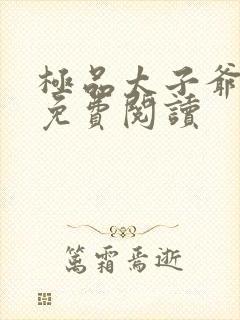 極品太子爺
免費閱讀
篤霜焉逝